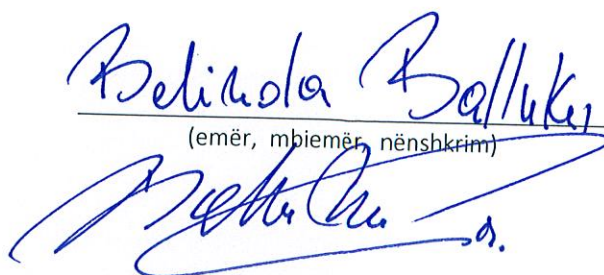 Belinda Balluku
(emër, mbiemër, nënshkrim)